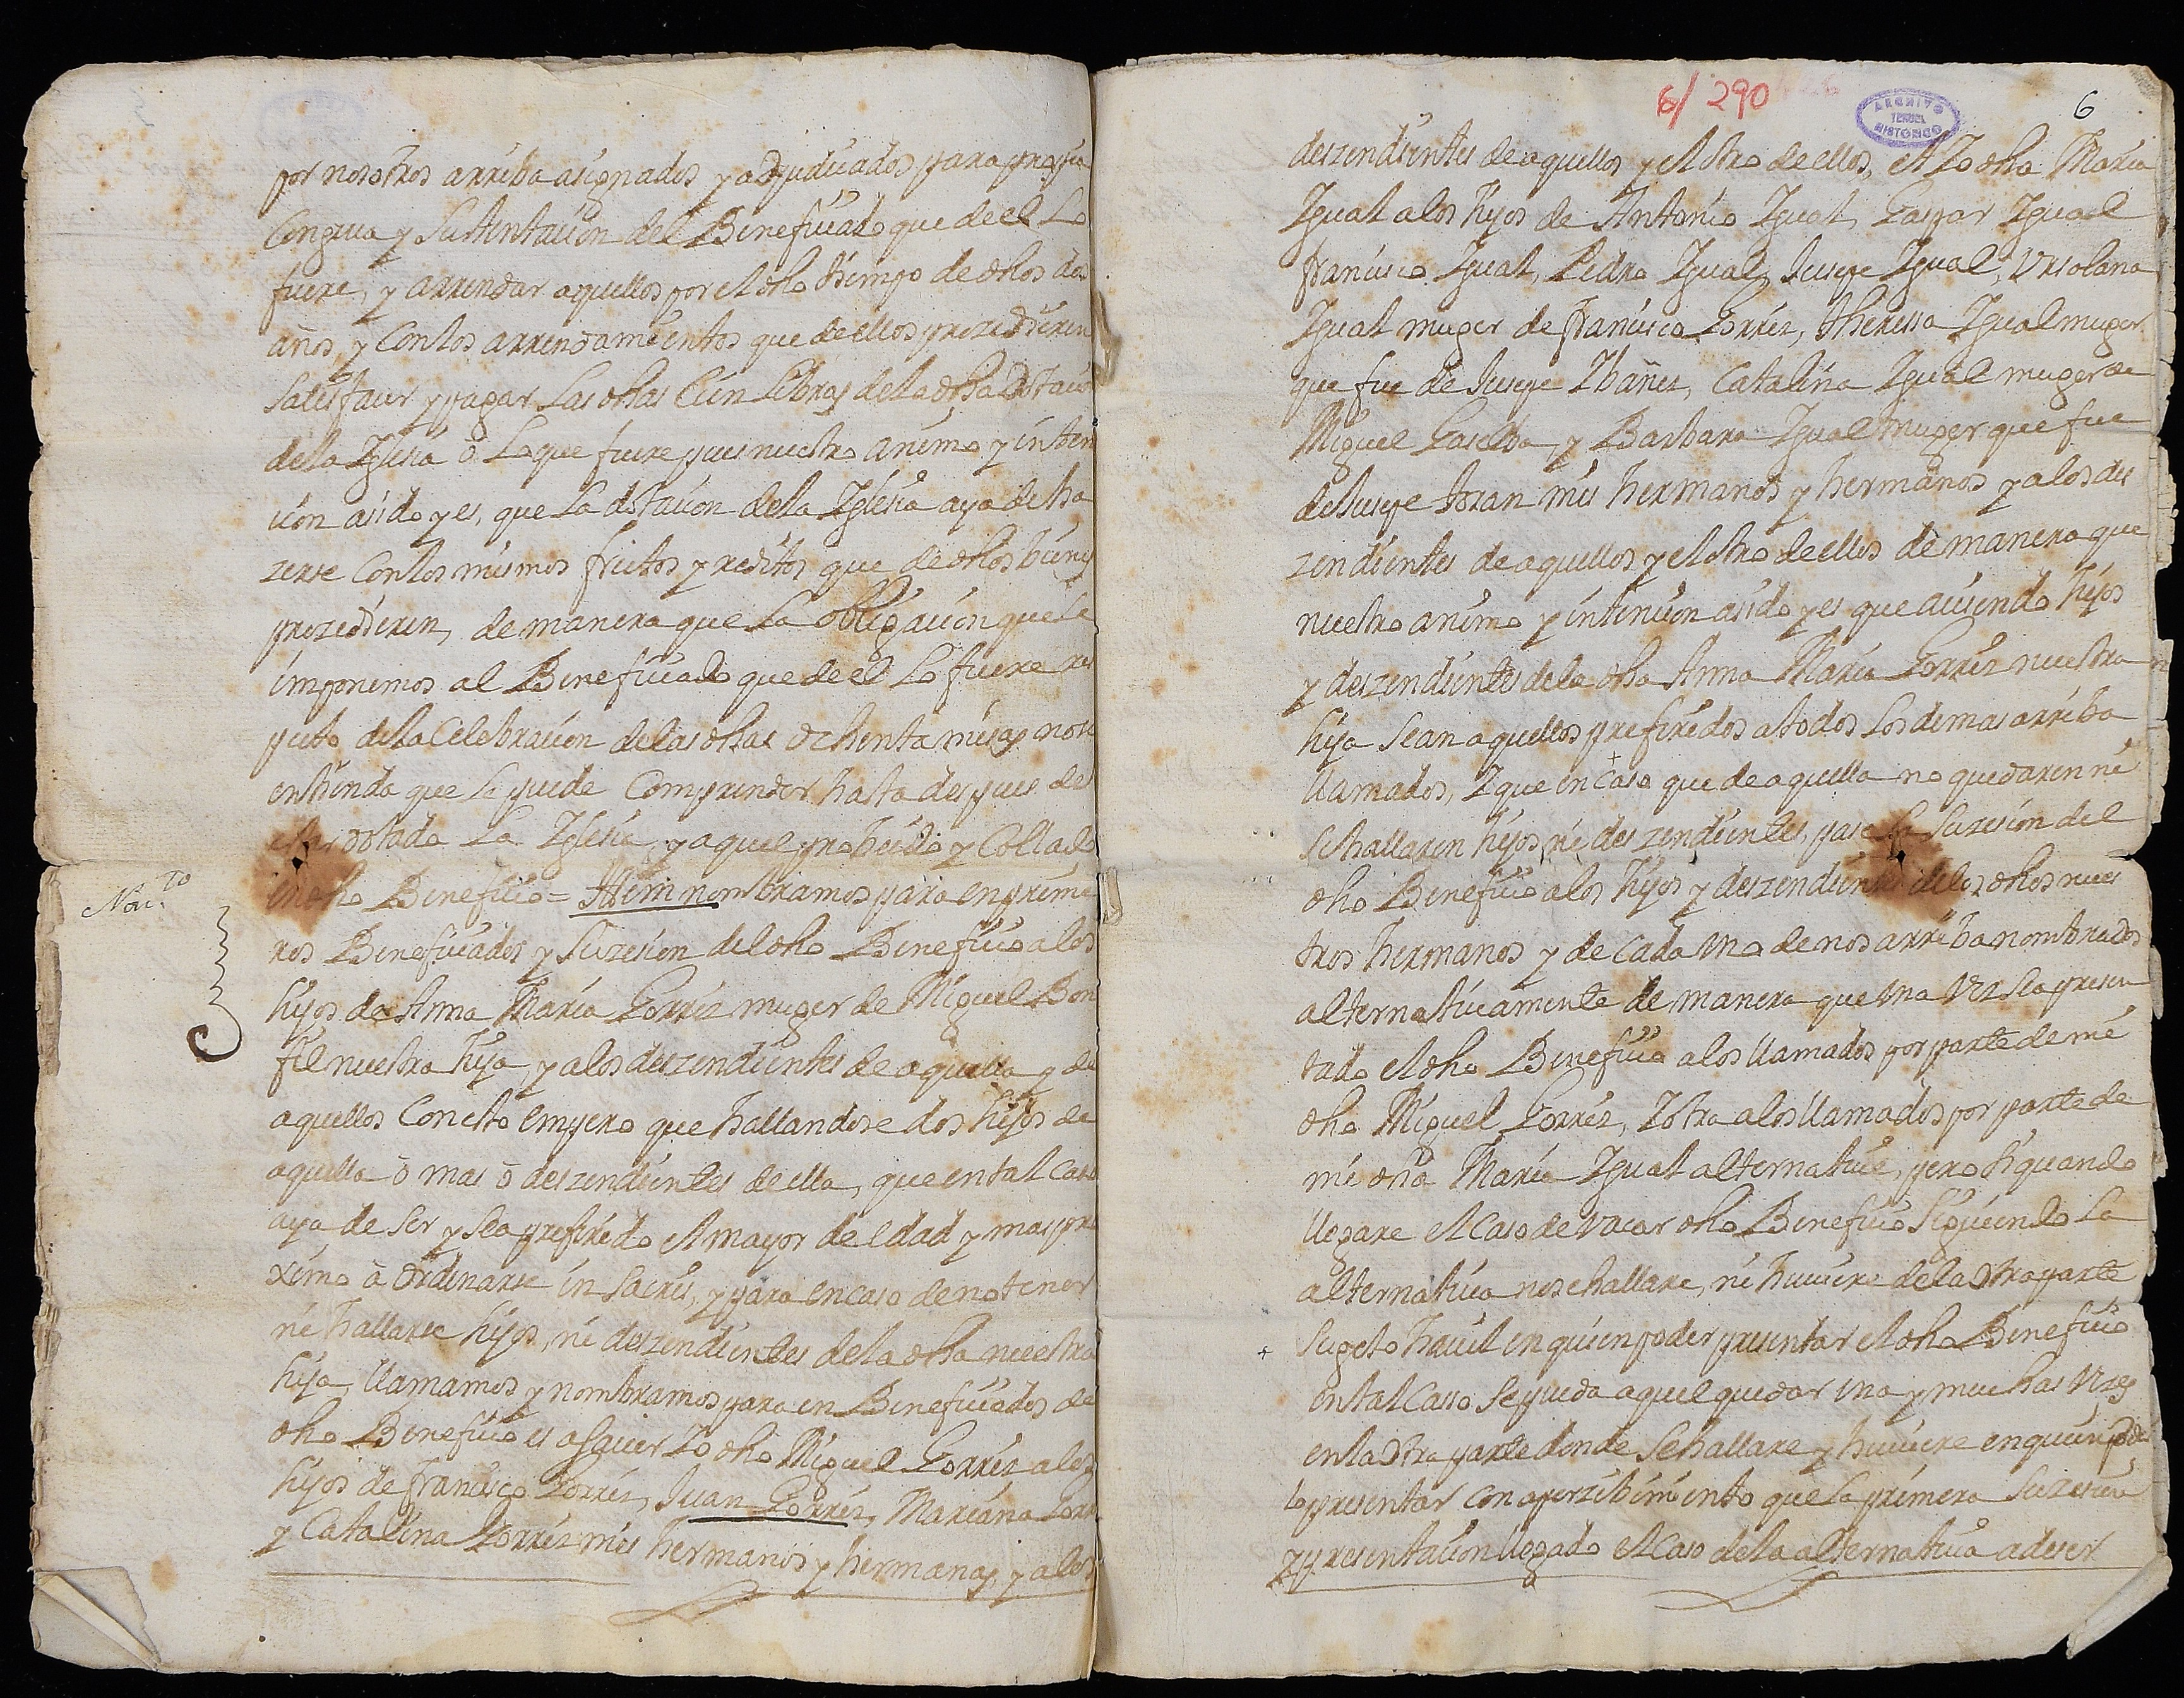 por nosotros arriba asignados y adjudicados para propia
Congrua y Sustentacion del Beneficiado que de el Lo
fuere, y arrendar aquellos por el dho tiempo de dhos dos
años, y Con los arrendamientos que de ellos prozedieren
Satisfacer y pagar Las dhas Cien Libras de la dha Dotacion
de la Iglesia o Lo que fuere pues nuestro animo y inten
cion asido y es, que La dotacion de la Iglesia aya de ha
zerse Con los mismos frutos y reditos que de dhos bienes
prozedieren, de manera que La obligacion que Le
imponemos al Beneficiado que de el Lo fuere res
pecto de la Celebracion de las dhas ochenta misas no se
entienda que Le puede Comprender hasta despues de
estar dotada La Iglesia, y aquel probeido y Collado
en dho Beneficio = Item nombramos para en prime
Nom.to
ros Beneficiados y Suzesion del dho Beneficio a los
hijos de Anna Maria Gorriz muger de Miguel Bon
fil nuestra hija, y a los deszendientes de aquella y de
aquellos Con esto empero que hallandose dos hijos de
aquella ò mas ò deszendientes de ella, que en tal caso
aya de Ser y Sea preferido el mayor de Edad y mas pro
ximo à ordinarse in Sacris, y para en caso de no tener
ni hallarse hijos, ni deszendientes de la dha nuestra
hija, llamamos y nombramos para en Beneficiados de
dho Beneficio es a Saver Yo dho Miguel Gorriz a los
hijos de francisco Gorriz, Juan Gorriz, Mariana Gorriz
y Catalina Gorriz mis hermanos y hermanas, y a los
6/ 290
ARCHIVO
TERUEL
HISTORICO
6
deszendientes de aquellos y el otro de ellos, et Yo dha Maria
Igual a los hijos de Antonio Igual, Gaspar Igual
francisco Igual, Pedro Igual, Jusepe Igual, Ursolana
Igual muger de francisco Gorriz, Theressa Igual muger
que fue de Jusepe Ybañez, Catalina Igual muger de
Miguel Gascon, y Barbara Igual muger que fue
de Jusepe Joran mis hermanos y hermanas y a los des
zendientes de aquellos y el otro de ellos de manera que
nuestro animo y intencion asido y es que aviendo hijos
y deszendientes de la dha Anna Maria Gorriz nuestra
hija Sean aquellos preferidos a todos Los demas arriba
llamados, Y que en caso que de aquella no quedaren ni
Se hallaren hijos, ni deszendientes, pase La Suzesion del
dho Beneficio a los hijos y deszendientes de los dhos nues
tros hermanos y de cada uno de nos arriba nombrados
alternativamente de manera que una vez Sea presen
tado el dho Beneficio a los llamados por parte de mi
dho Miguel Gorriz, Y otra a los llamados por parte de
mi dha Maria Igual alternative, pero si quando
llegare el Caso de vacar dho Beneficio Siguiendo La
alternativa no se hallare, ni huviere de la otra parte
Sugeto havil en quien poder presentar el dho Beneficio
en tal Caso Se pueda aquel quedar una y muchas vezes
en la otra parte donde Se hallare y huviere en quien poder
lo presentar con aperzibimiento que La primera Suzesion
y presentacion llegado el Caso de la alternativa a de ser